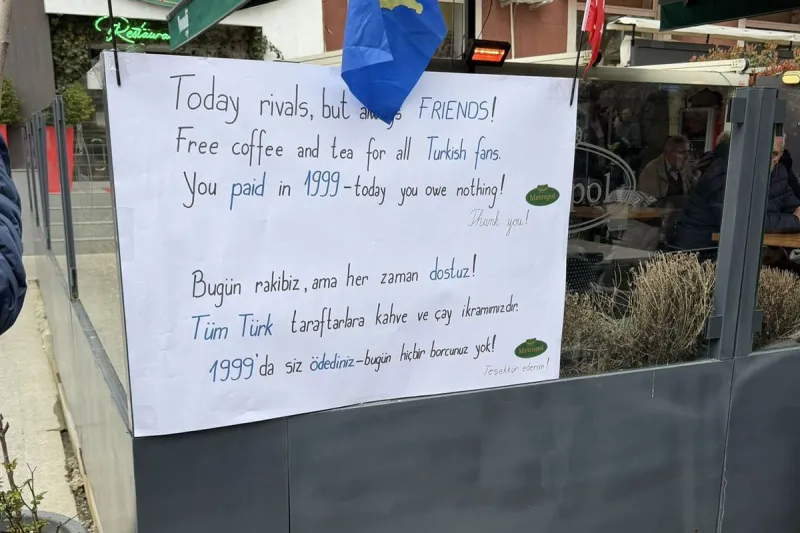 Restaura
Today rivals, but always FRIENDS!
Free coffee and tea for all Turkish fans.
You paid in 1999-today you owe nothing!
Metropol
Thank you!
pol
Bugün rakibiz, ama her zaman dostuz!
Tüm Türk taraftarlara kahve ve çay ikramımızdır.
1999'da siz ödediniz-bugün hiçbir borcunuz yok!
Metropol
Teşekkür ederim!